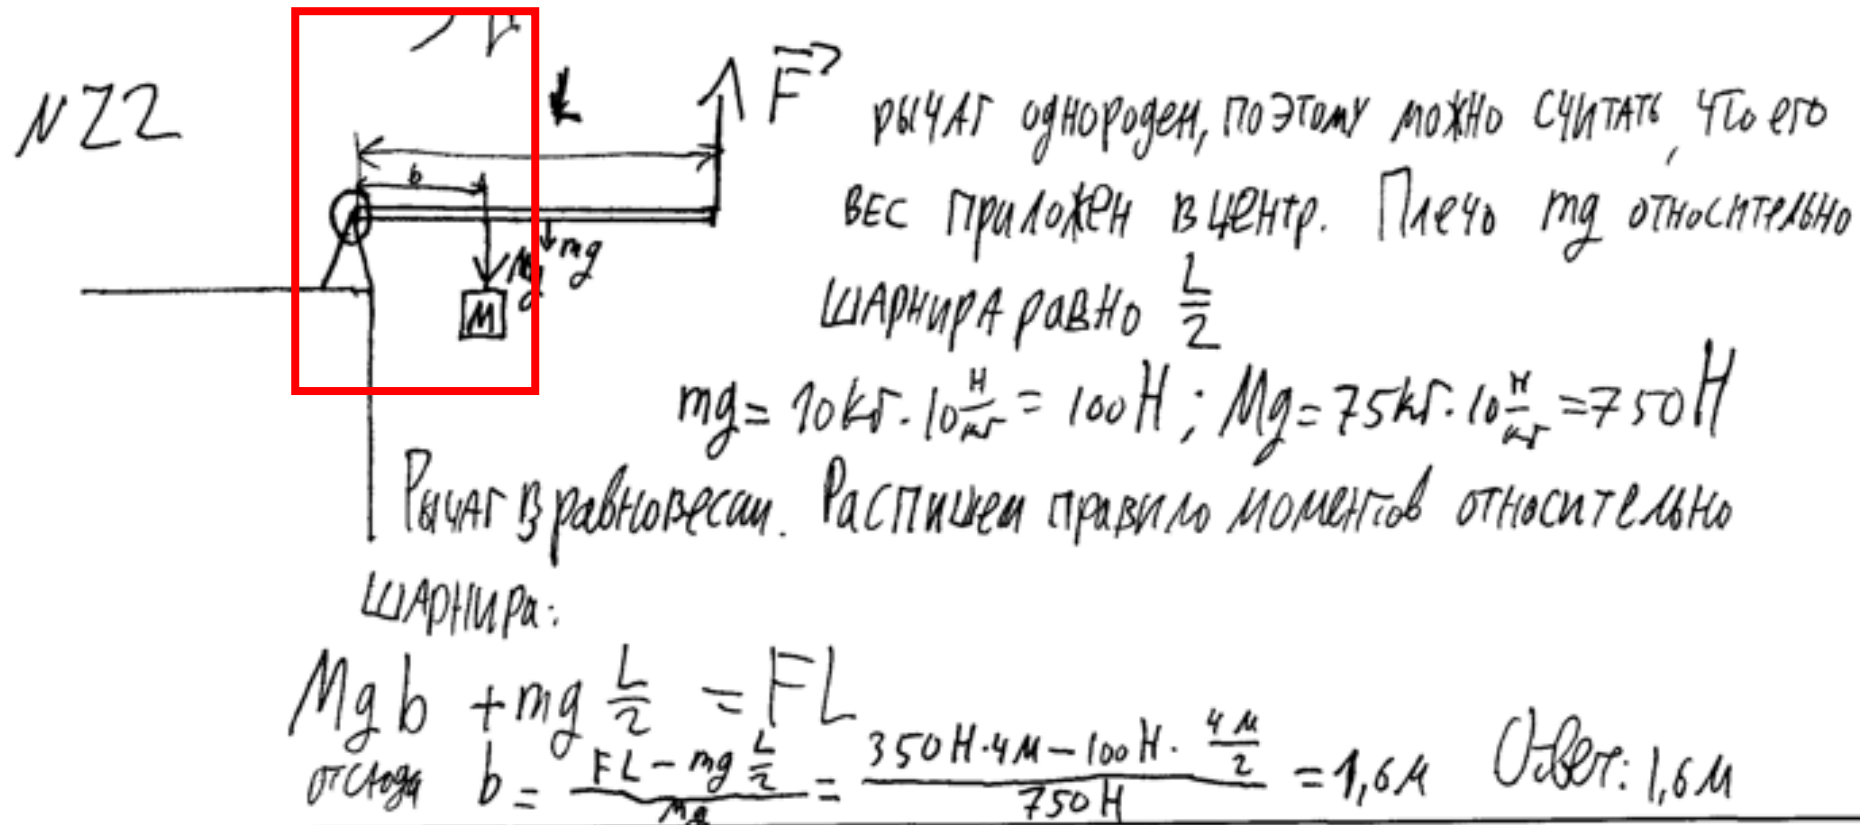 №22
L
F
b
Mg
mg
M
рычаг однороден, поэтому можно считать, что его
вес приложен в центр. Плечо mg относительно
шарнира равно L/2
mg = 10кг · 10 Н/кг = 100 Н ; Mg = 75кг · 10 Н/кг = 750 Н
Рычаг в равновесии. Распишем правило моментов относительно
шарнира:
Mg b + mg L/2 = FL
отсюда b = (FL - mg L/2)/Mg = (350 Н · 4 м - 100 Н · 4 м/2)/750 Н = 1,6 м Ответ: 1,6 м